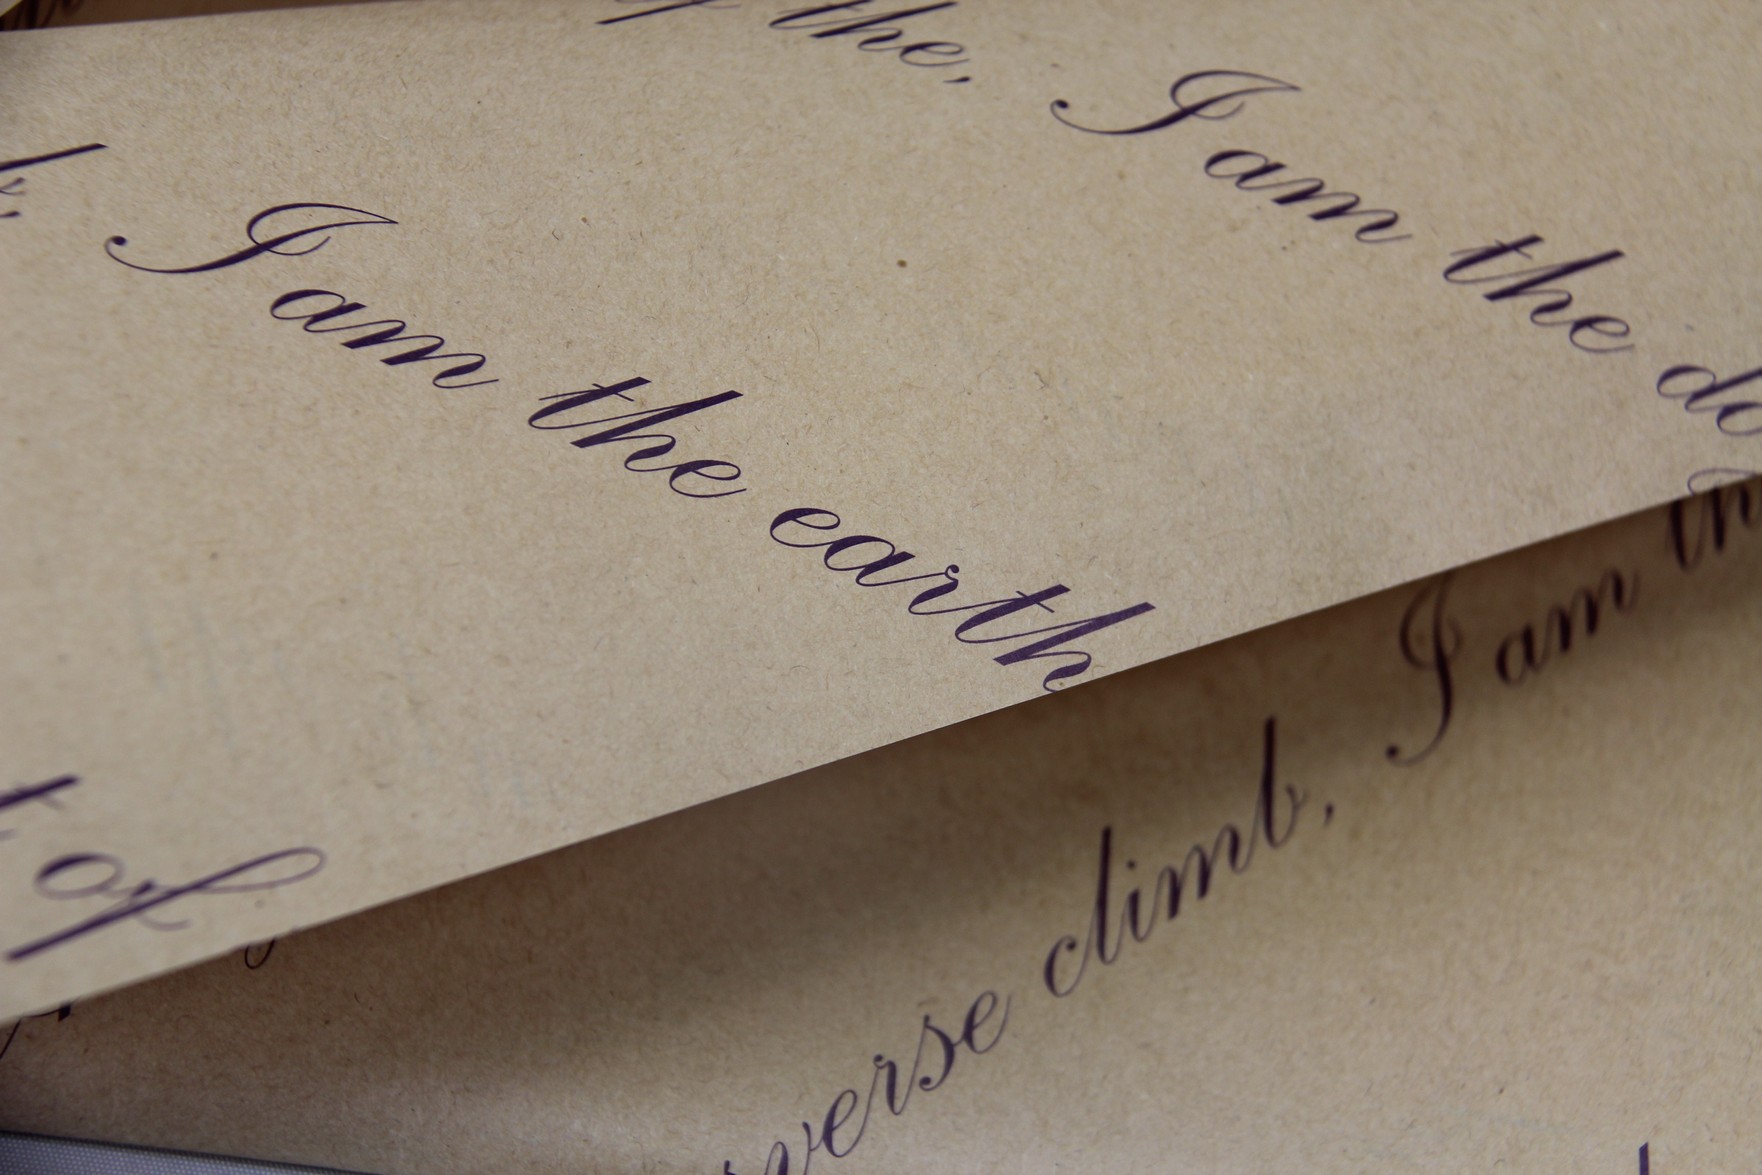 the, I am the
I am the earth
of
I am
verse climb,